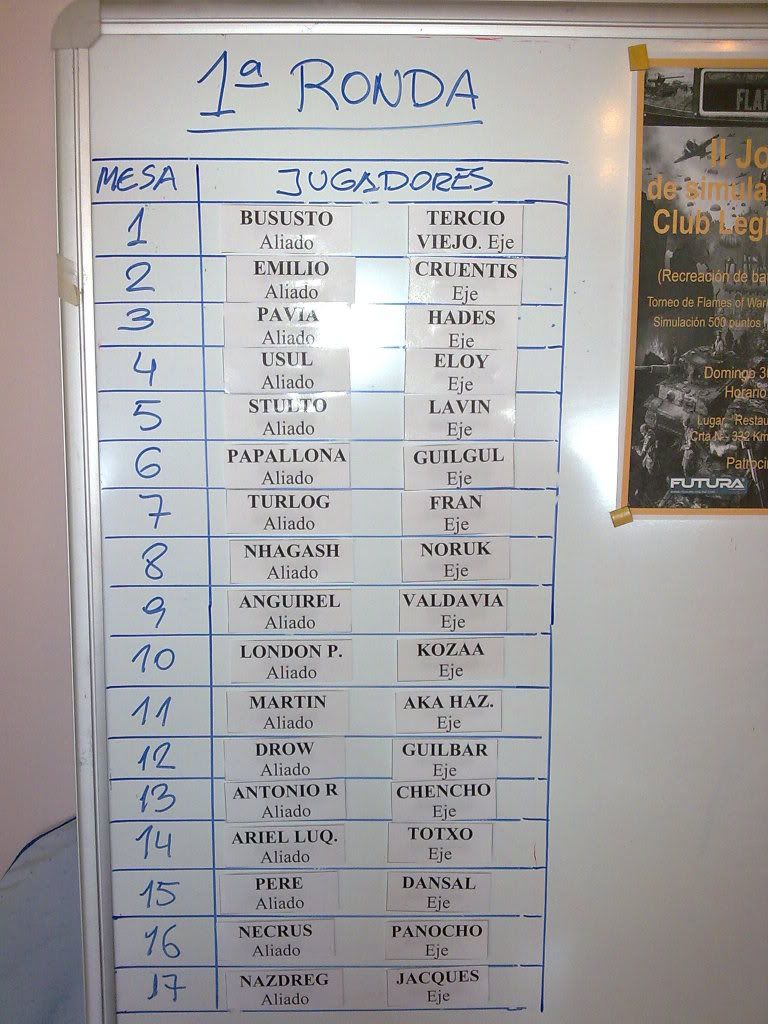 1ª RONDA
MESA JUGADORES
1 BUSUSTO Aliado TERCIO VIEJO. Eje
2 EMILIO Aliado CRUENTIS Eje
3 PAVIA Aliado HADES Eje
4 USUL Aliado ELOY Eje
5 STULTO Aliado LAVIN Eje
6 PAPALLONA Aliado GUILGUL Eje
7 TURLOG Aliado FRAN Eje
8 NHAGASH Aliado NORUK Eje
9 ANGUIREL Aliado VALDAVIA Eje
10 LONDON P. Aliado KOZAA Eje
11 MARTIN Aliado AKA HAZ. Eje
12 DROW Aliado GUILBAR Eje
13 ANTONIO R Aliado CHENCHO Eje
14 ARIEL LUQ. Aliado TOTXO Eje
15 PERE Aliado DANSAL Eje
16 NECRUS Aliado PANOCHO Eje
17 NAZDREG Aliado JACQUES Eje
II
de
Club
(Recreación de
Torneo de Flames of
Simulación 500 puntos
Domingo
Horario
Lugar.
FUTURA